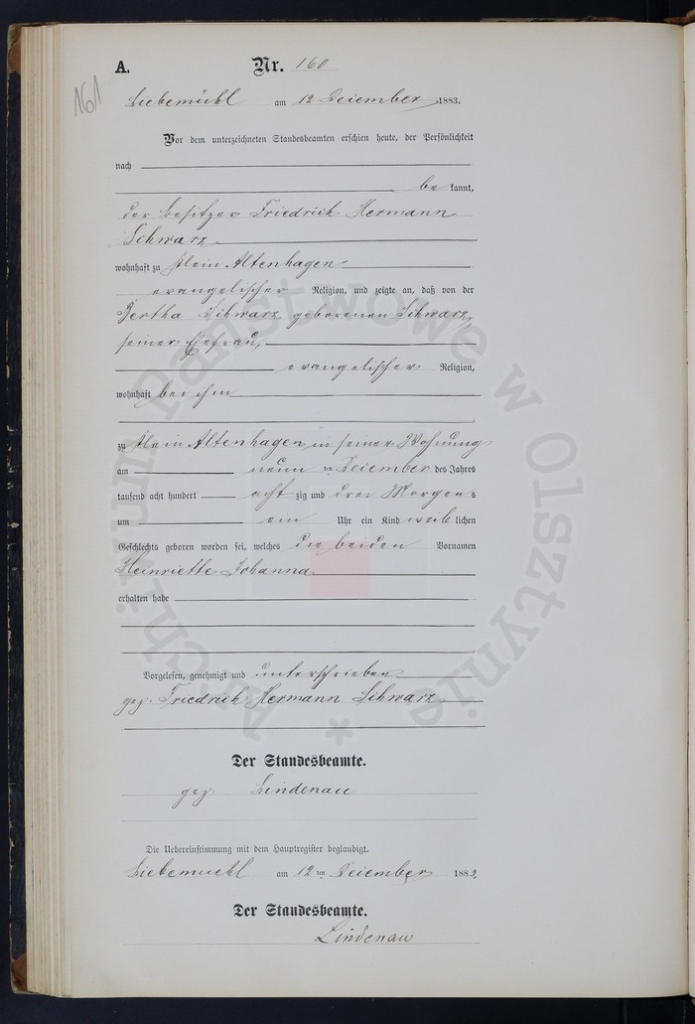 A. Nr. 160
161
Liebemühl am 12 Dezember 1883.
Vor dem unterzeichneten Standesbeamten erschien heute, der Persönlichkeit
nach
be kannt,
der Besitzer Friedrich Hermann
Schwarz
wohnhaft zu Klein Altenhagen
evangelischer Religion, und zeigte an, daß von der
Bertha Schwarz geborenen Schwarz,
seiner Ehefrau,
evangelischer Religion,
wohnhaft bei ihm
zu Klein Altenhagen in seiner Wohnung
am neun ten Dezember des Jahres
tausend acht hundert acht zig und drei Morgens
um ein Uhr ein Kind weib lichen
Geschlechts geboren worden sei, welches die beiden Vornamen
Heinriette Johanna
erhalten habe
Vorgelesen, genehmigt und unterschrieben
gez. Friedrich Hermann Schwarz
Der Standesbeamte.
gez Lindenau
Die Uebereinstimmung mit dem Hauptregister beglaubigt.
Liebemuehl am 12ten Dezember 1883.
Der Standesbeamte.
Lindenau
Archiwum Państwowe w Olsztynie *